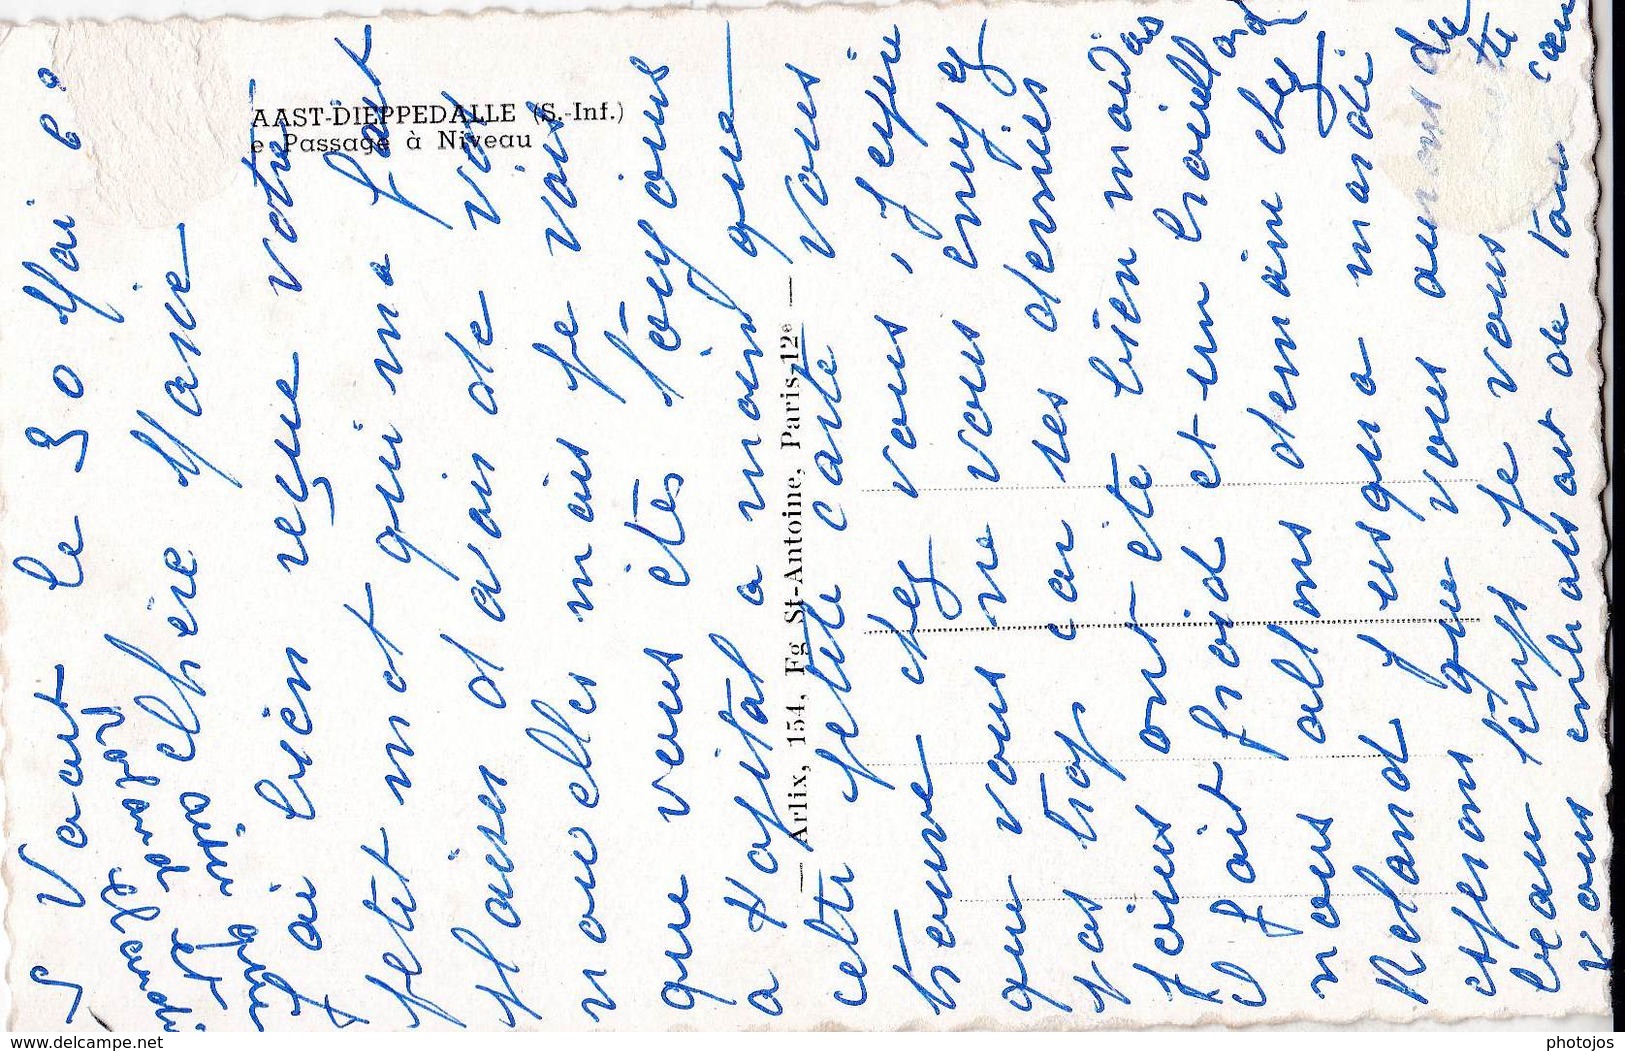 AAST-DIEPPEDALLE (S.-Inf.)
e Passage à Niveau
— Arlix, 154, Fg St-Antoine, Paris-12e —
S Vaast le 30 Mai 6
Chère Marie
J ai bien reçue votre
petit mot qui ma fait
plaisir d avoir de vos
nouvelles mais je vois
que vous êtes toujours
a Hopital a moins que
cette petite carte vous
trouve chez vous, J espère
que vous ne vous enuyez
pas trop car ses derniers
Jours ont été bien maudas
il fait froid et un brouillard
nous allons demain chez
Roland Jusqua mardi
esperons que vous aurons du
beau temps je vous
Vous embrassent de tout cœur
Claudine
et